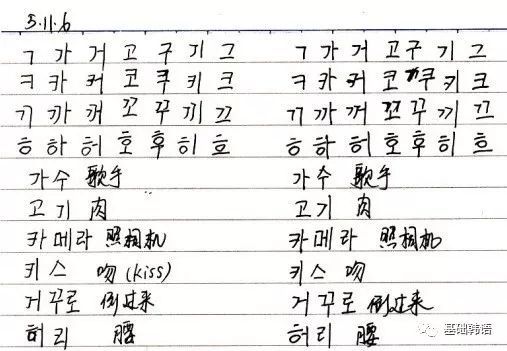 5.11.6
ㄱ 가 거 고 구 기 그 ㄱ 가 거 고 구 기 그
ㅋ 카 커 코 쿠 키 크 ㅋ 카 커 코 쿠 키 크
ㄲ 까 꺼 꼬 꾸 끼 끄 ㄲ 까 꺼 꼬 꾸 끼 끄
ㅎ 하 허 호 후 히 흐 ㅎ 하 허 호 후 히 흐
가수 歌手 가수 歌手
고기 肉 고기 肉
카메라 照相机 카메라 照相机
키스 吻(kiss) 키스 吻
거꾸로 倒过来 거꾸로 倒过来
허리 腰 허리 腰
基础韩语